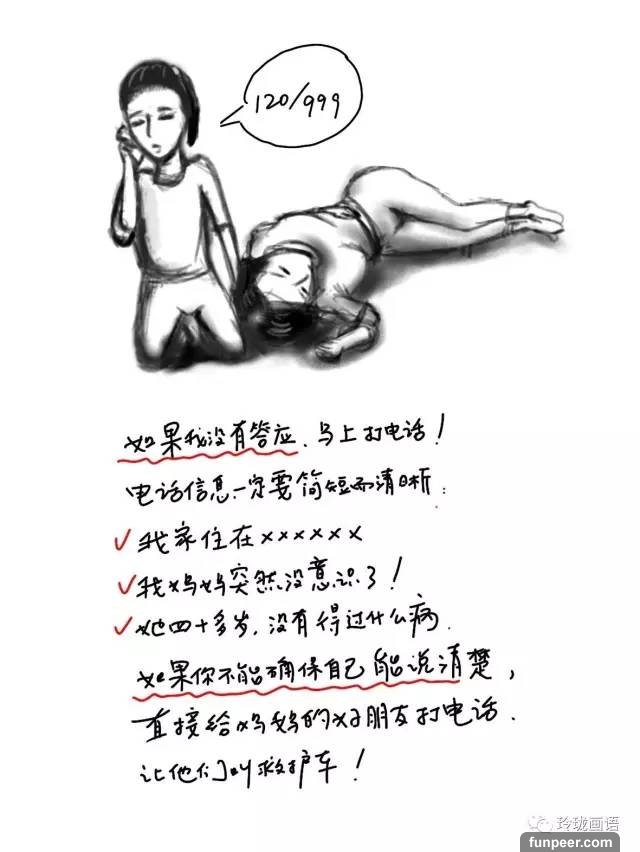 120/999
如果我没有答应、马上打电话！
电话信息一定要简短而清晰：
✓我家住在××××××
✓我妈妈突然没意识了！
✓她四十多岁，没有得过什么病.
如果你不能确保自己能说清楚，
直接给妈妈的好朋友打电话.
让他们叫救护车！
玲珑画语
funpeer.com